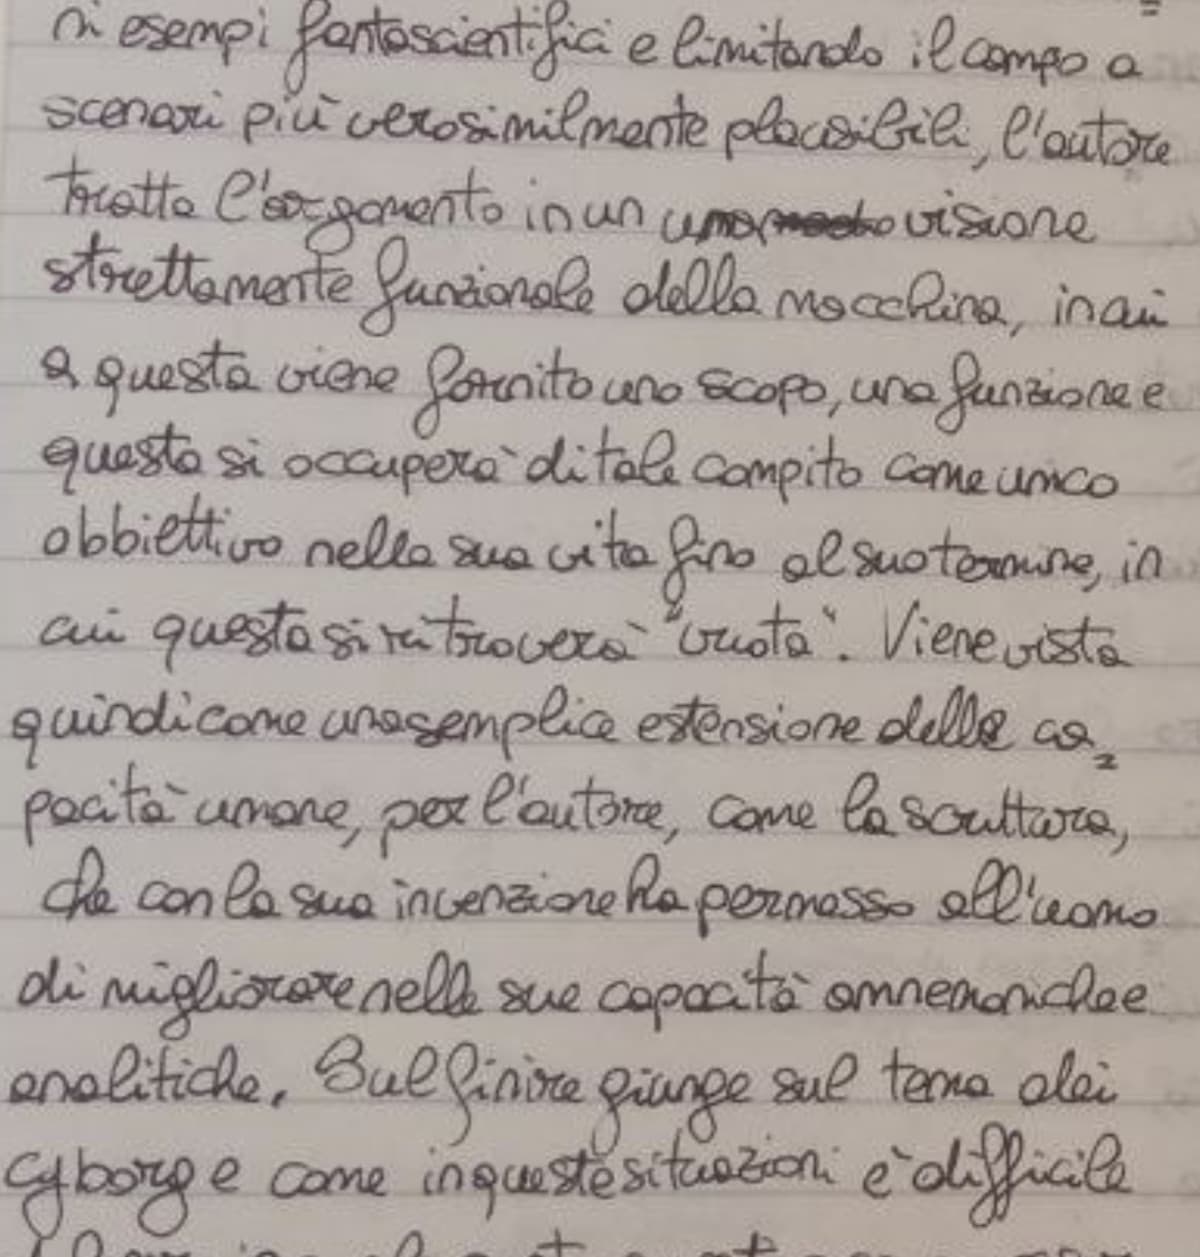 ri esempi fantascientifici e limitando il campo a
scenari più verosimilmente plausibili, l'autore
tratta l'argomento in un visione
strettamente funzionale della macchina, in cui
a questa viene fornito uno scopo, una funzione e
questa si occuperà di tale compito come unico
obbiettivo nella sua vita fino al suo termine, in
cui questa si ritroverà "vuota". Viene vista
quindi come una semplice estensione delle ca=
pacità umane, per l'autore, come la scrittura,
che con la sua invenzione ha permesso all'uomo
di migliorare nelle sue capacità amnemoniche e
analitiche. Sul finire giunge sul tema dei
cyborg e come in queste situazioni è difficile